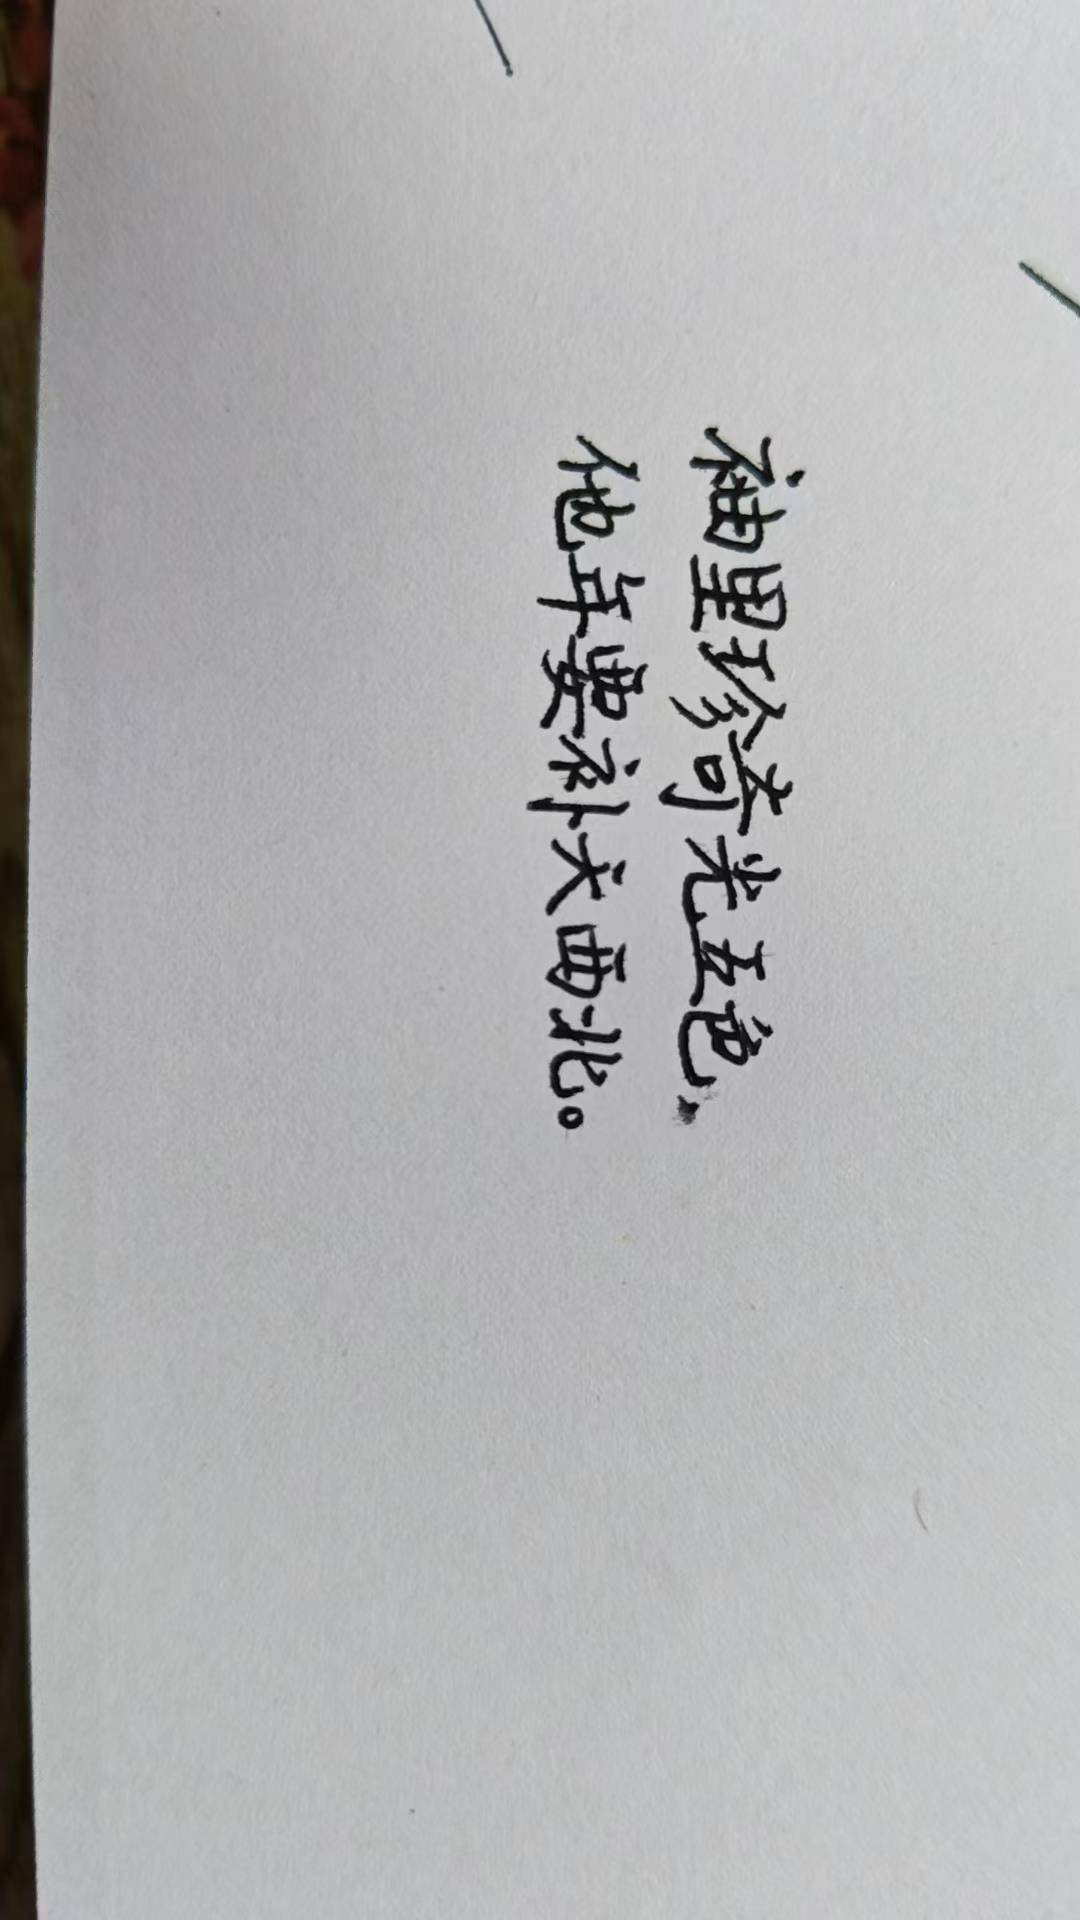 袖里珍奇光五色，
他年要补天西北。